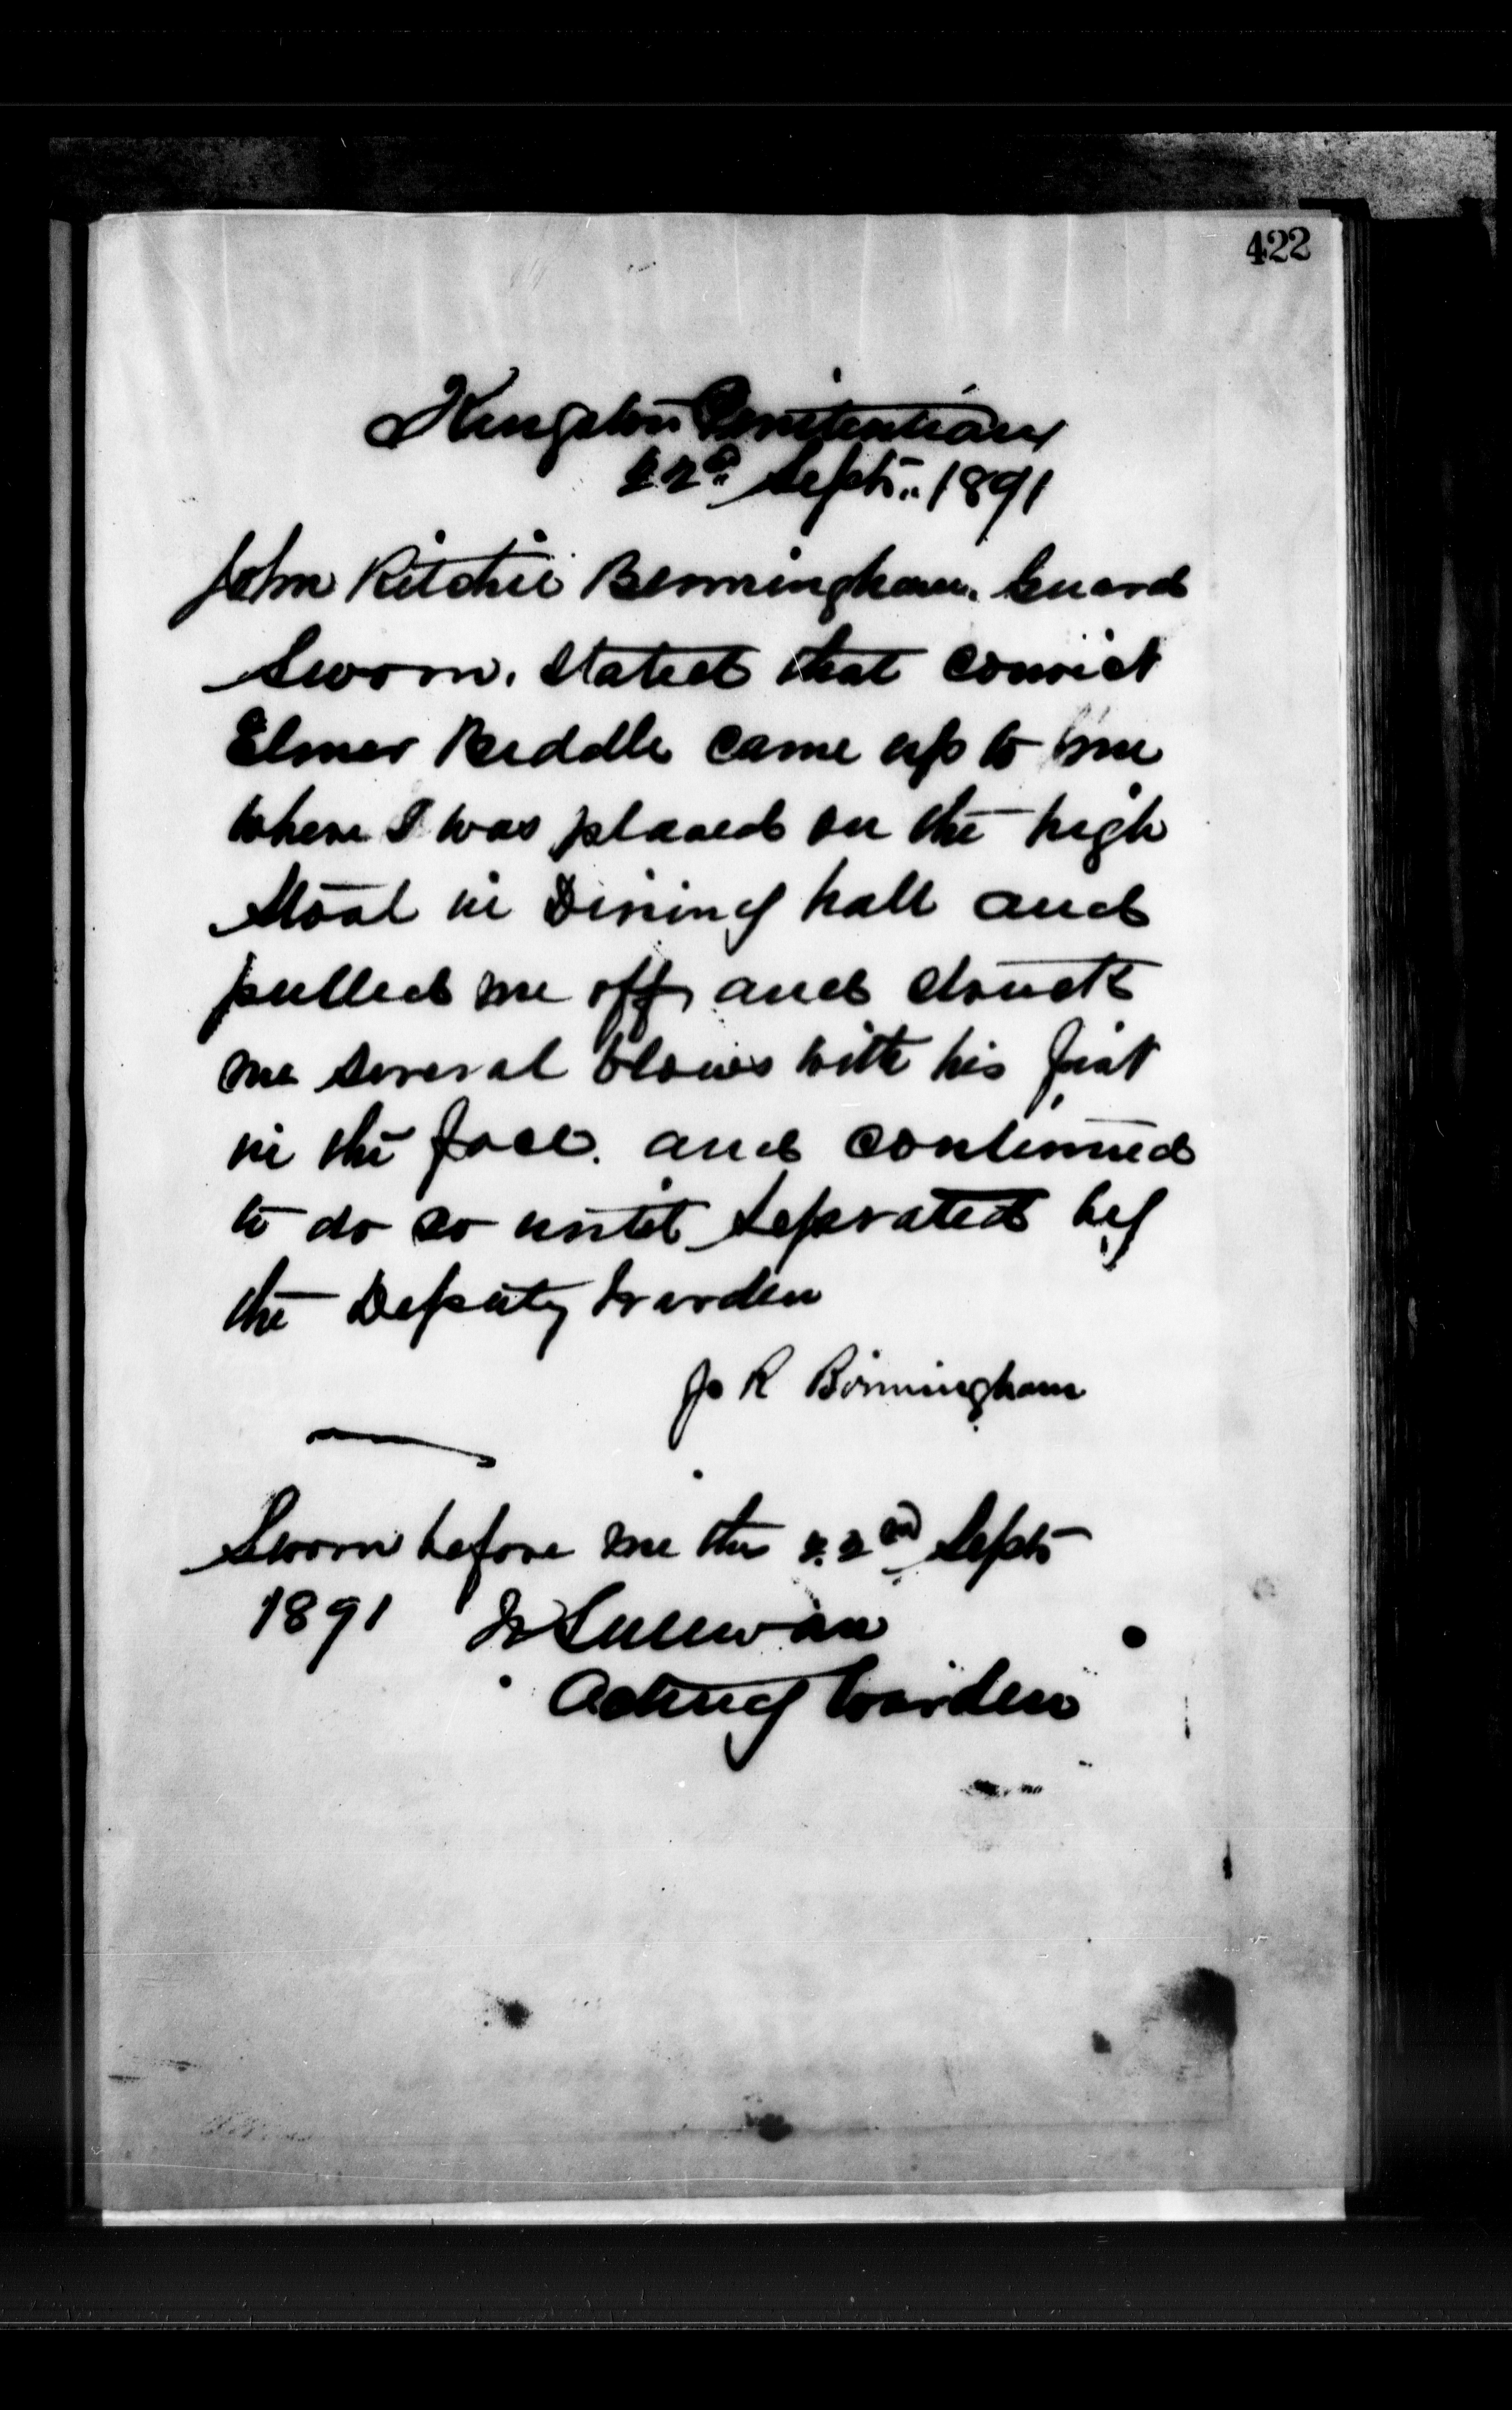 422
Kingston Penitentiary
22d Sept. 1891
John Ritchie Birmingham. Guard
Sworn. Stated that convict
Elmer Biddle came up to me
where I was placed on the high
Stool in Dining hall and
pulled me off, and struck
me several blows with his fist
in the face. and continued
to do so until seprated by
the Deputy Warden
J R Birmingham
Sworn before me the 22nd Sept
1891 Sullivan
Acting Warden